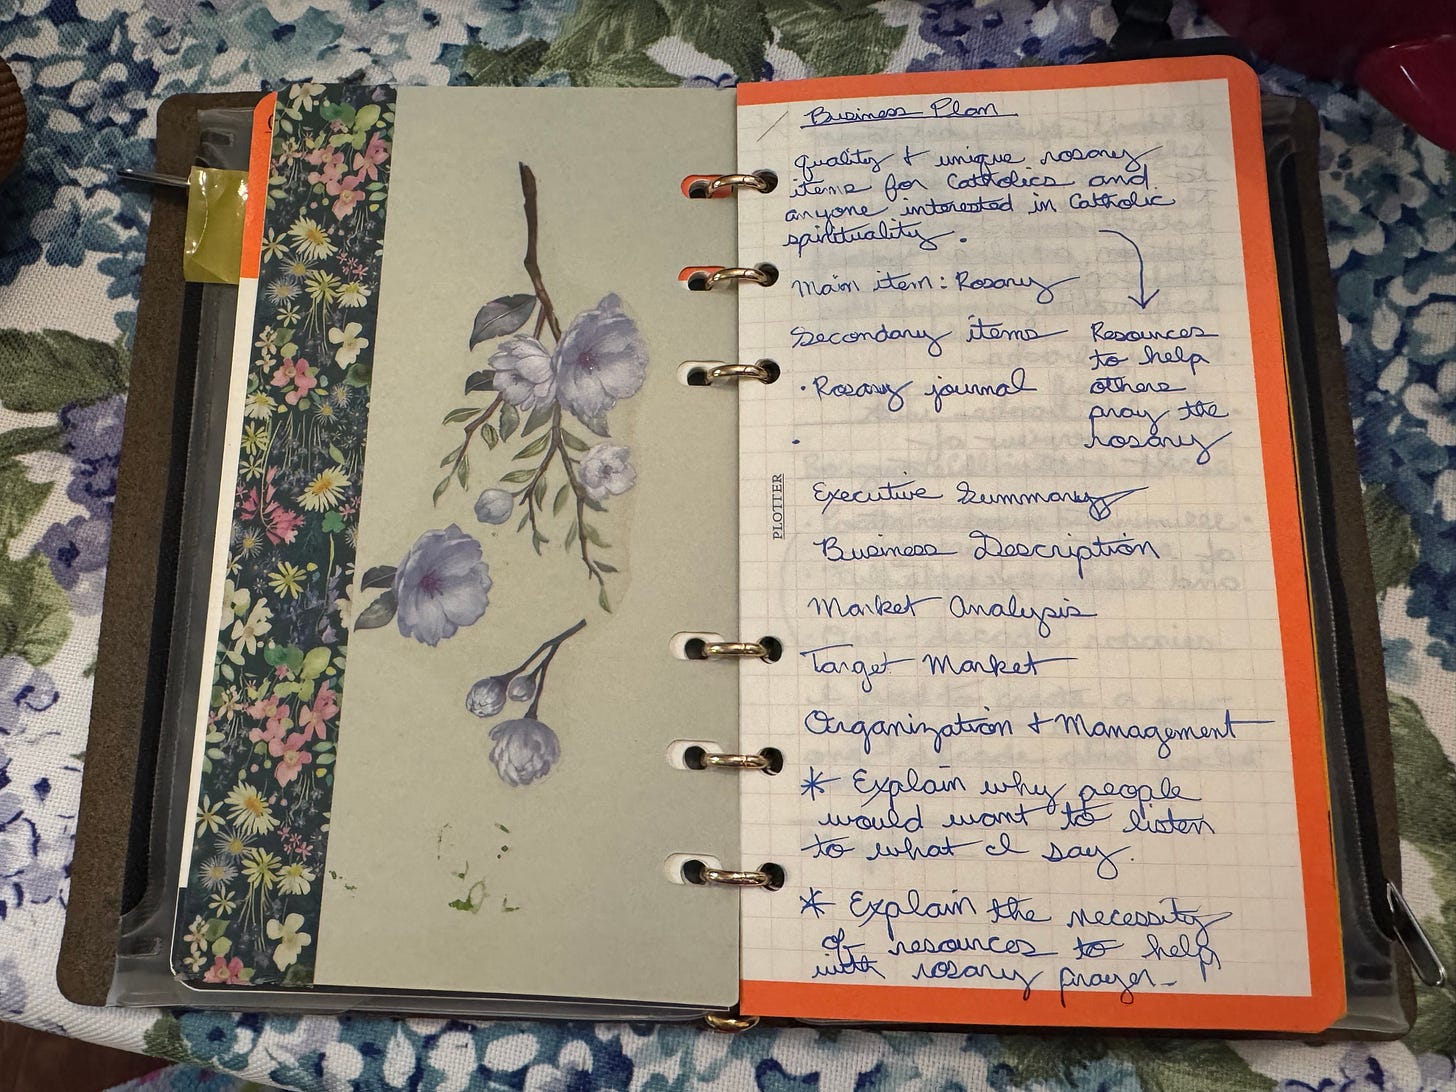 Business Plan
quality + unique rosary
items for Catholics and
anyone interested in Catholic
spirituality.
Main item: Rosary
Secondary items
• Rosary journal
•
Resources
to help
others
pray the
rosary
PLOTTER
Executive Summary
Business Description
Market Analysis
Target Market
Organization + Management
* Explain why people
would want to listen
to what I say.
* Explain the necessity
of resources to help
with rosary prayer.